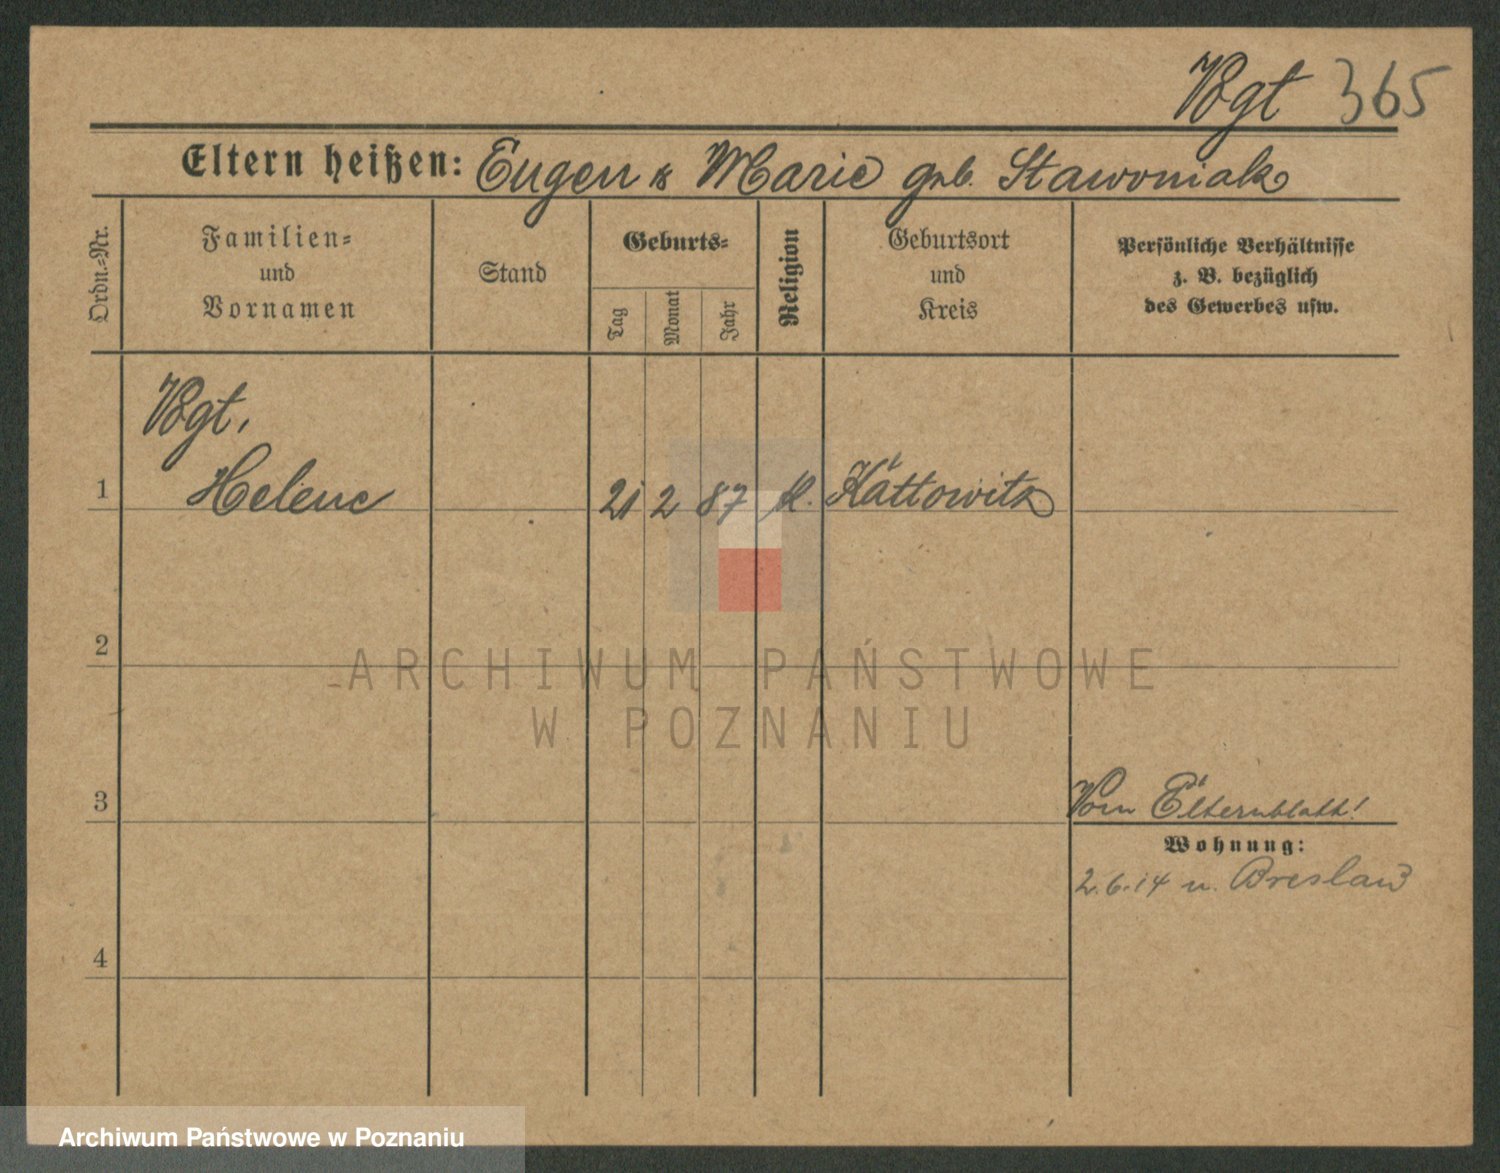 Vogt 365
Eltern heißen: Eugen & Marie geb. Stawoniak
Ordn.=Nr.
Familien=
und
Vornamen
Stand
Geburts=
Tag
Monat
Jahr
Religion
Geburtsort
und
Kreis
Persönliche Verhältnisse
z. B. bezüglich
des Gewerbes usw.
Vogt,
1 Helene 21 2 87 k. Kattowitz
2
ARCHIWUM PAŃSTWOWE
W POZNANIU
3 Vom Elternblatt!
Wohnung:
2.6.14 n. Breslau
4
Archiwum Państwowe w Poznaniu